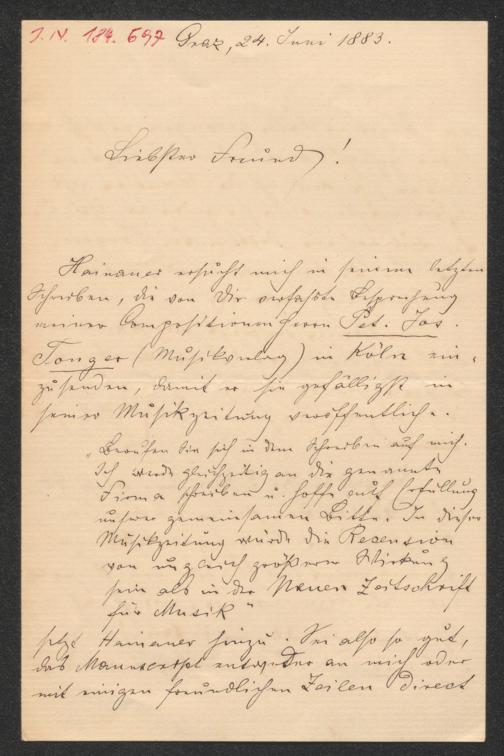 I. N. 184.697 Graz, 24. Juni 1883.
Liebster Freund!
Hainauer ersucht mich in seinem letzten
Schreiben, die von Dir verfaßte Besprechung
meiner Compositionen Herrn Pet. Jos.
Tonger (Musikverlag) in Köln ein-
zusenden, damit er sie gefälligst in
seiner Musikzeitung veröffentliche.
„Berufen Sie sich in dem Schreiben auf mich.
Ich werde gleichzeitig an die genannte
Firma schreiben u. hoffe auf Erfüllung
unserer gemeinsamen Bitte. In dieser
Musikzeitung würde die Recension
von ungleich größerer Wirkung
sein als in der Neuen Zeitschrift
für Musik"
setzt Hainauer hinzu. Sei also so gut,
das Manuscript entweder an mich oder
mit einigen freundlichen Zeilen direct